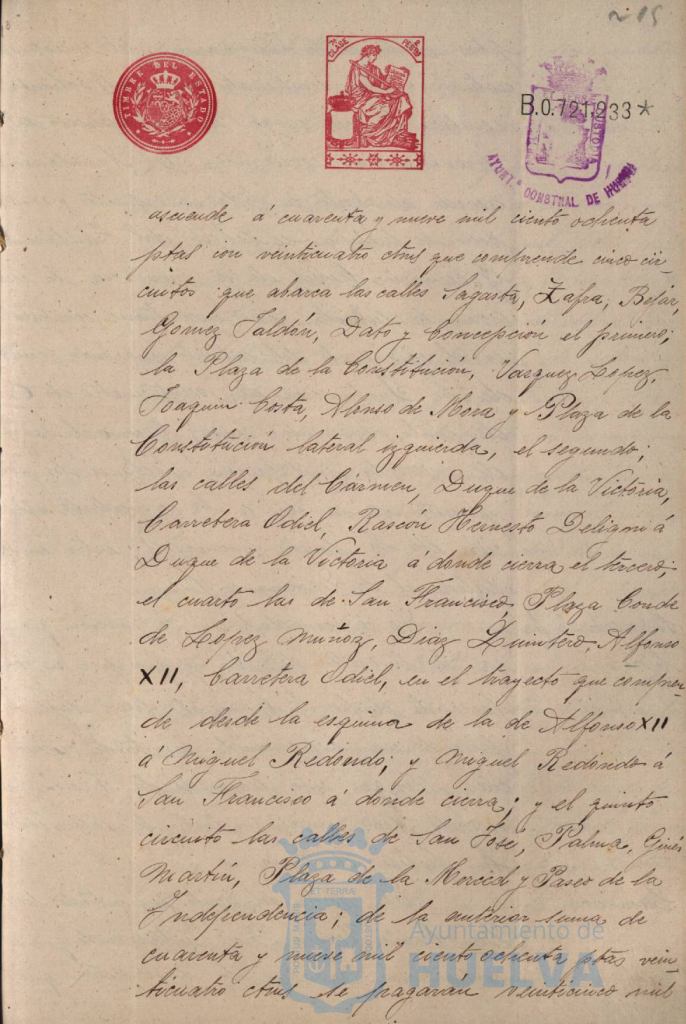 215
TIMBRE DEL ESTADO
7ª CLASE
PESETAS
B.0.721,233*
CUSTODIA
AYUNT.º CONSTNAL DE HUELVA
asciende á cuarenta y nueve mil ciento ochenta
ptas con veinticuatro ctms que comprende cinco cir-
cuitos que abarca las calles Sagasta, Zafra, Bejar,
Gomez Jaldón, Dato y Concepción el primero;
la Plaza de la Constitución, Vazquez Lopez,
Joaquin Costa, Alonso de Mora y Plaza de la
Constitución lateral izquierda, el segundo;
las calles del Cármen, Duque de la Victoria,
Carretera Odiel, Rascón Hernesto Deligni á
Duque de la Victoria á donde cierra el tercero;
el cuarto las de San Francisco, Plaza Conde
de Lopez Muñoz, Diaz Quintero, Alfonso
XII, Carretera Odiel, en el trayecto que compren-
de desde la esquina de la de Alfonso XII
á Miguel Redondo; y Miguel Redondo á
San Francisco á donde cierra; y el quinto
circuito las calles de San José, Palma, Ginés
Martín, Plaza de la Merced y Paseo de la
Independencia; de la anterior suma de
cuarenta y nueve mil ciento ochenta ptas vein-
ticuatro ctms se pagarán veinticinco mil
Ayuntamiento de
HUELVA